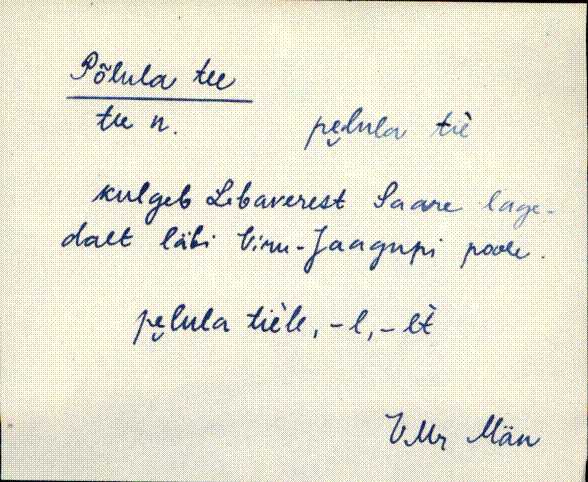 Põlula tee
tee n. pe̮lula tiè
kulgeb Lebaverest Saare lage-
dalt läbi Viru-Jaagupi poole.
pe̮lula tièle, -l, -lt
VMr Män